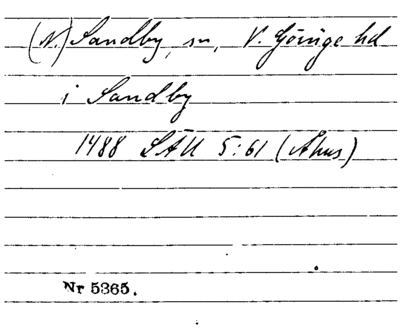 (N.) Sandby, sn, V. Göinge hd
i Sandby
1488 LÄU 5:61 (Åhus)
Nr 5365.